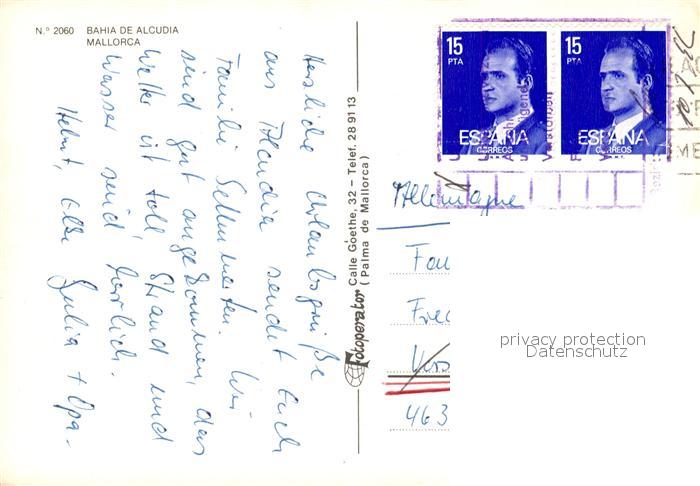 N.º 2060 BAHIA DE ALCUDIA
MALLORCA
Herzliche Urlaubsgrüße
aus Alcudia sendet Euch
Familie Wir
sind gut angekommen, das
Wetter ist toll, Strand und
Wasser sind herrlich.
Helmut, Else Julia + Opa.
Fotoperator Calle Goethe, 32 – Telef. 28 91 13
(Palma de Mallorca)
15
PTA
ESPAÑA
CORREOS
15
PTA
ESPAÑA
CORREOS
Allemagne
Fam
Fried
463
privacy protection
Datenschutz